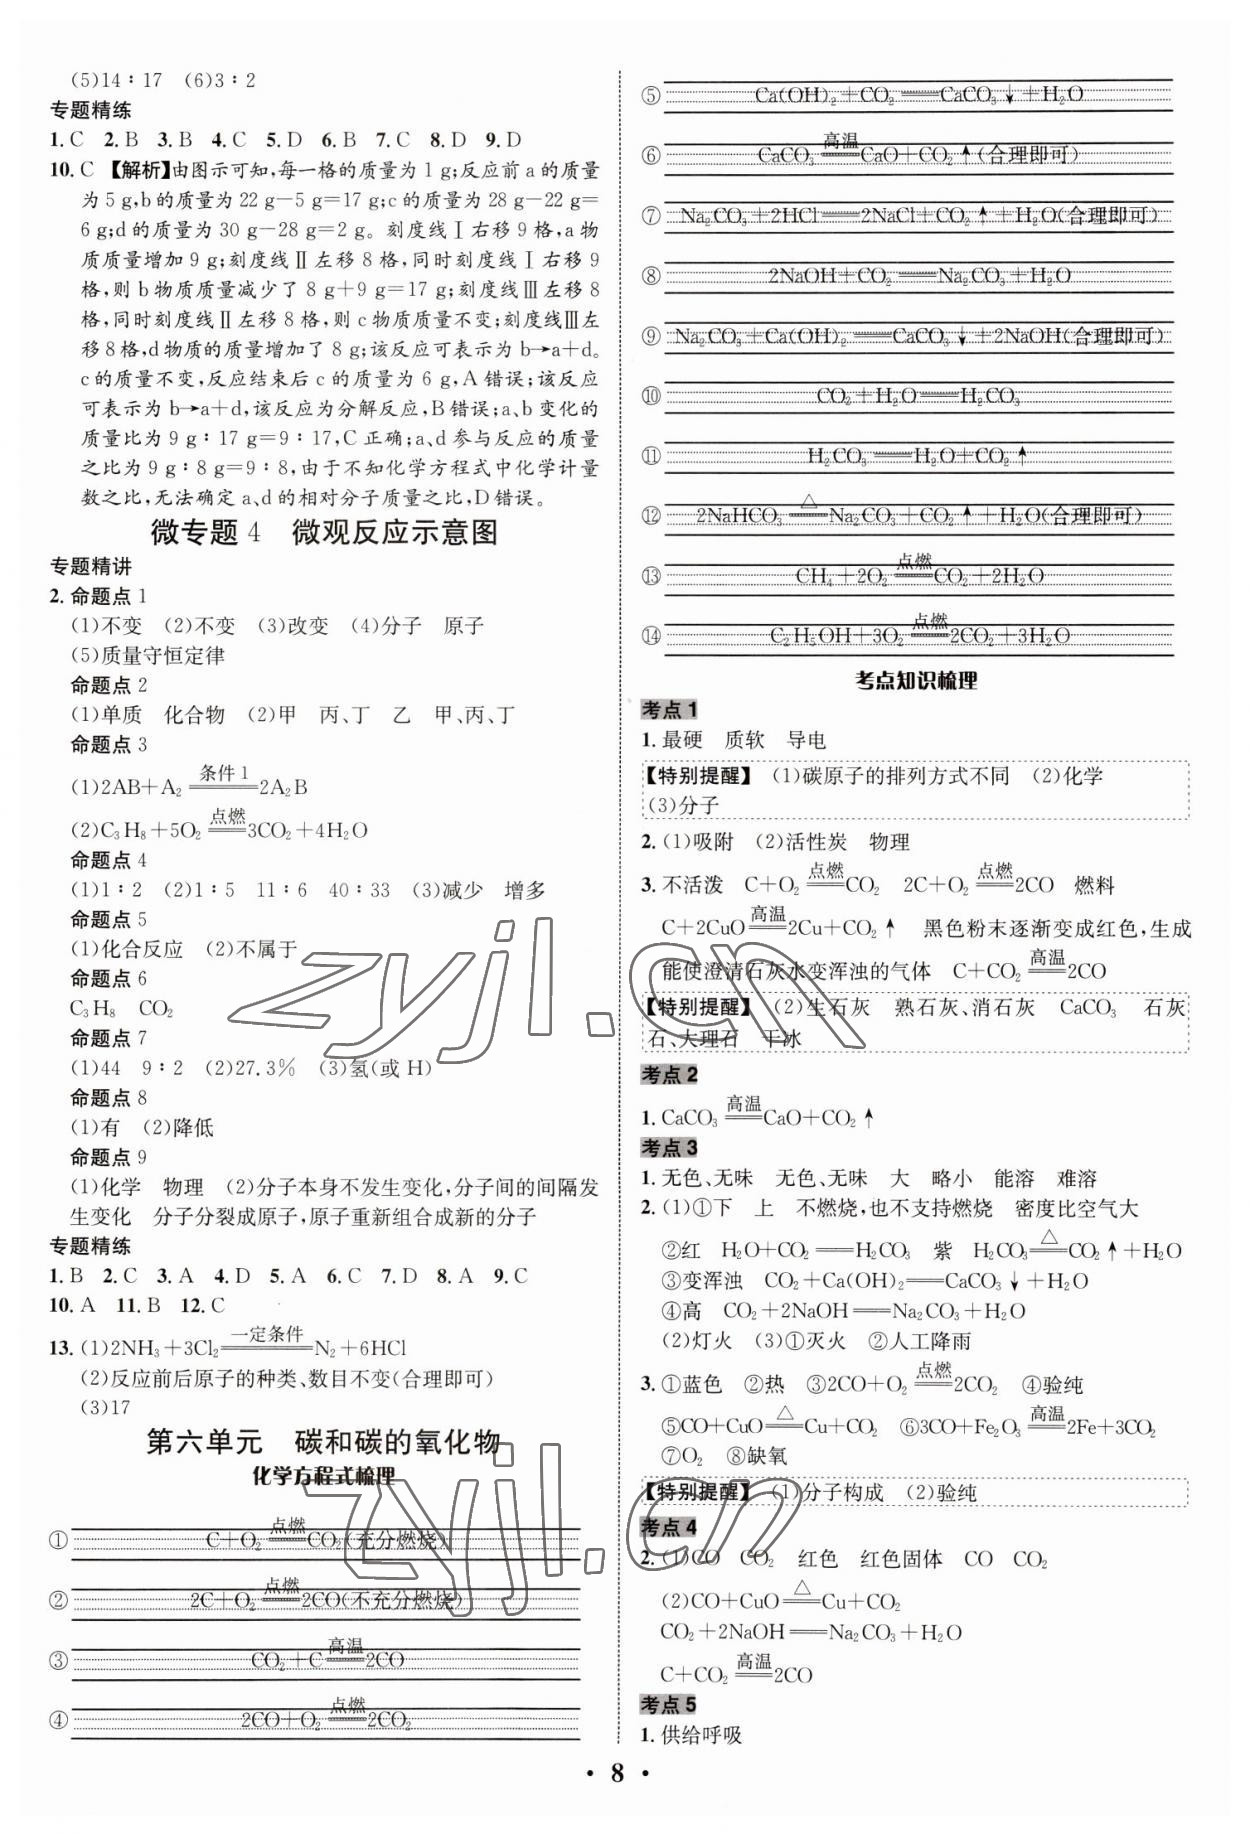 (5)14∶17　(6)3∶2
专题精练
1. C　2. B　3. B　4. C　5. D　6. B　7. C　8. D　9. D
10. C　【解析】由图示可知,每一格的质量为 1 g;反应前 a 的质量
为 5 g,b 的质量为 22 g－5 g＝17 g;c 的质量为 28 g－22 g＝
6 g;d 的质量为 30 g－28 g＝2 g。刻度线Ⅰ右移 9 格,a 物
质质量增加 9 g;刻度线Ⅱ左移 8 格,同时刻度线Ⅰ右移 9
格,则 b 物质质量减少了 8 g＋9 g＝17 g;刻度线Ⅲ左移 8
格,同时刻度线Ⅱ左移 8 格,则 c 物质质量不变;刻度线Ⅲ左
移 8 格,d 物质的质量增加了 8 g;该反应可表示为 b→a＋d。
c 的质量不变,反应结束后 c 的质量为 6 g,A 错误;该反应
可表示为 b→a＋d,该反应为分解反应,B 错误;a、b 变化的
质量比为 9 g∶17 g＝9∶17,C 正确;a、d 参与反应的质量
之比为 9 g∶8 g＝9∶8,由于不知化学方程式中化学计量
数之比,无法确定 a、d 的相对分子质量之比,D 错误。
微专题 4　微观反应示意图
专题精讲
2. 命题点 1
(1)不变　(2)不变　(3)改变　(4)分子　原子
(5)质量守恒定律
命题点 2
(1)单质　化合物　(2)甲　丙、丁　乙　甲、丙、丁
命题点 3
(1)2AB＋A₂ ══条件 1══ 2A₂B
(2)C₃H₈＋5O₂ ══点燃══ 3CO₂＋4H₂O
命题点 4
(1)1∶2　(2)1∶5　11∶6　40∶33　(3)减少　增多
命题点 5
(1)化合反应　(2)不属于
命题点 6
C₃H₈　CO₂
命题点 7
(1)44　9∶2　(2)27.3%　(3)氢(或 H)
命题点 8
(1)有　(2)降低
命题点 9
(1)化学　物理　(2)分子本身不发生变化,分子间的间隔发
生变化　分子分裂成原子,原子重新组合成新的分子
专题精练
1. B　2. C　3. A　4. D　5. A　6. C　7. D　8. A　9. C
10. A　11. B　12. C
13. (1)2NH₃＋3Cl₂ ══一定条件══ N₂＋6HCl
(2)反应前后原子的种类、数目不变(合理即可)
(3)17
第六单元　碳和碳的氧化物
化学方程式梳理
① C＋O₂ ══点燃══ CO₂(充分燃烧)
② 2C＋O₂ ══点燃══ 2CO(不充分燃烧)
③ CO₂＋C ══高温══ 2CO
④ 2CO＋O₂ ══点燃══ 2CO₂
⑤ Ca(OH)₂＋CO₂ ══ CaCO₃↓＋H₂O
⑥ CaCO₃ ══高温══ CaO＋CO₂↑(合理即可)
⑦ Na₂CO₃＋2HCl ══ 2NaCl＋CO₂↑＋H₂O(合理即可)
⑧ 2NaOH＋CO₂ ══ Na₂CO₃＋H₂O
⑨ Na₂CO₃＋Ca(OH)₂ ══ CaCO₃↓＋2NaOH(合理即可)
⑩ CO₂＋H₂O ══ H₂CO₃
⑪ H₂CO₃ ══ H₂O＋CO₂↑
⑫ 2NaHCO₃ ══△══ Na₂CO₃＋CO₂↑＋H₂O(合理即可)
⑬ CH₄＋2O₂ ══点燃══ CO₂＋2H₂O
⑭ C₂H₅OH＋3O₂ ══点燃══ 2CO₂＋3H₂O
考点知识梳理
考点 1
1. 最硬　质软　导电
【特别提醒】　(1)碳原子的排列方式不同　(2)化学
(3)分子
2. (1)吸附　(2)活性炭　物理
3. 不活泼　C＋O₂ ══点燃══ CO₂　2C＋O₂ ══点燃══ 2CO　燃料
C＋2CuO ══高温══ 2Cu＋CO₂↑　黑色粉末逐渐变成红色,生成
能使澄清石灰水变浑浊的气体　C＋CO₂ ══高温══ 2CO
【特别提醒】　(2)生石灰　熟石灰、消石灰　CaCO₃　石灰
石、大理石　干冰
考点 2
1. CaCO₃ ══高温══ CaO＋CO₂↑
考点 3
1. 无色、无味　无色、无味　大　略小　能溶　难溶
2. (1)①下　上　不燃烧,也不支持燃烧　密度比空气大
②红　H₂O＋CO₂ ══ H₂CO₃　紫　H₂CO₃ ══△══ CO₂↑＋H₂O
③变浑浊　CO₂＋Ca(OH)₂ ══ CaCO₃↓＋H₂O
④高　CO₂＋2NaOH ══ Na₂CO₃＋H₂O
(2)灯火　(3)①灭火　②人工降雨
3. ①蓝色　②热　③2CO＋O₂ ══点燃══ 2CO₂　④验纯
⑤CO＋CuO ══△══ Cu＋CO₂　⑥3CO＋Fe₂O₃ ══高温══ 2Fe＋3CO₂
⑦O₂　⑧缺氧
【特别提醒】　(1)分子构成　(2)验纯
考点 4
2. (1)CO　CO₂　红色　红色固体　CO　CO₂
(2)CO＋CuO ══△══ Cu＋CO₂
CO₂＋2NaOH ══ Na₂CO₃＋H₂O
C＋CO₂ ══高温══ 2CO
考点 5
1. 供给呼吸
· 8 ·
zyjl.cn
zyjl.cn